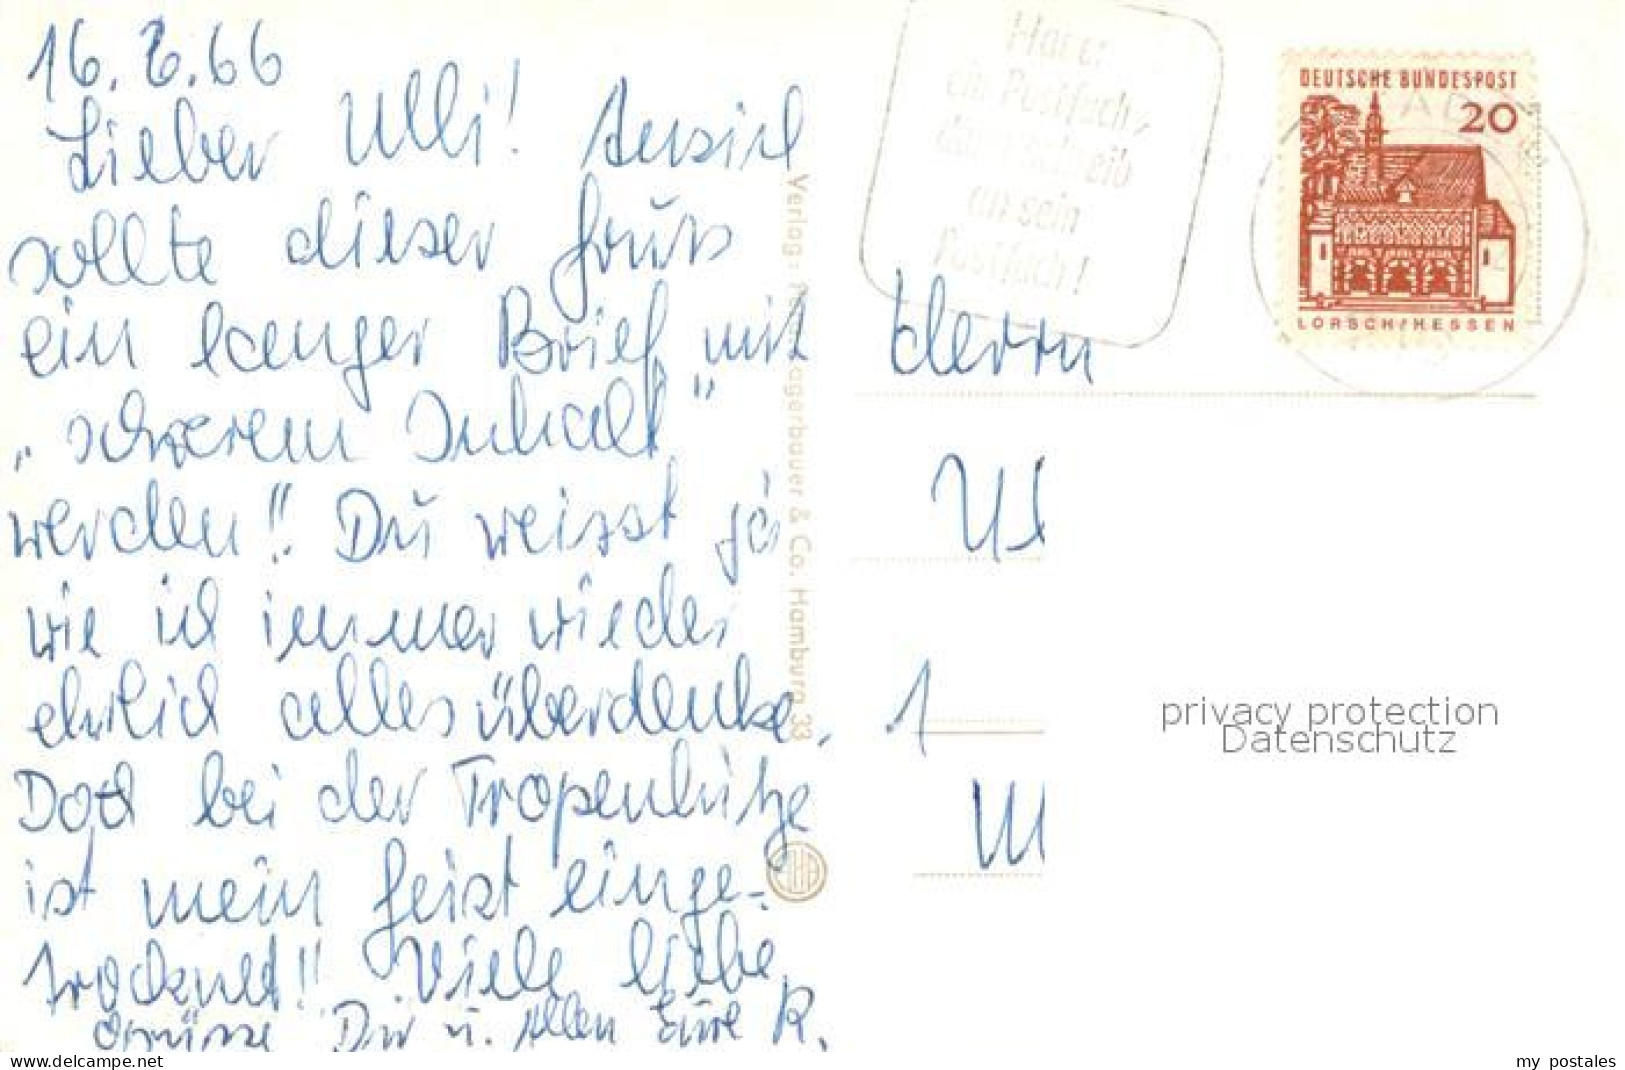 16. 6. 66
Lieber Ulli! Ansich
sollte dieser Gruss
ein langer Brief mit
"schwerem Inhalt"
werden!! Du weisst ja
wie ich immer wieder
ehrlich alles überdenke.
Doch bei der Tropenhitze
ist mein Geist einge-
trocknet!! Viele liebe
Grüsse Dir u. Allen Eure R.
Verlag: Hamburg 33
& Co.
Hat er
ein Postfach,
dann schreib
an sein
Postfach!
DEUTSCHE BUNDESPOST
20
LORSCH/HESSEN
Herrn
Ul
1
M
privacy protection
Datenschutz
www.delcampe.net
my_postales